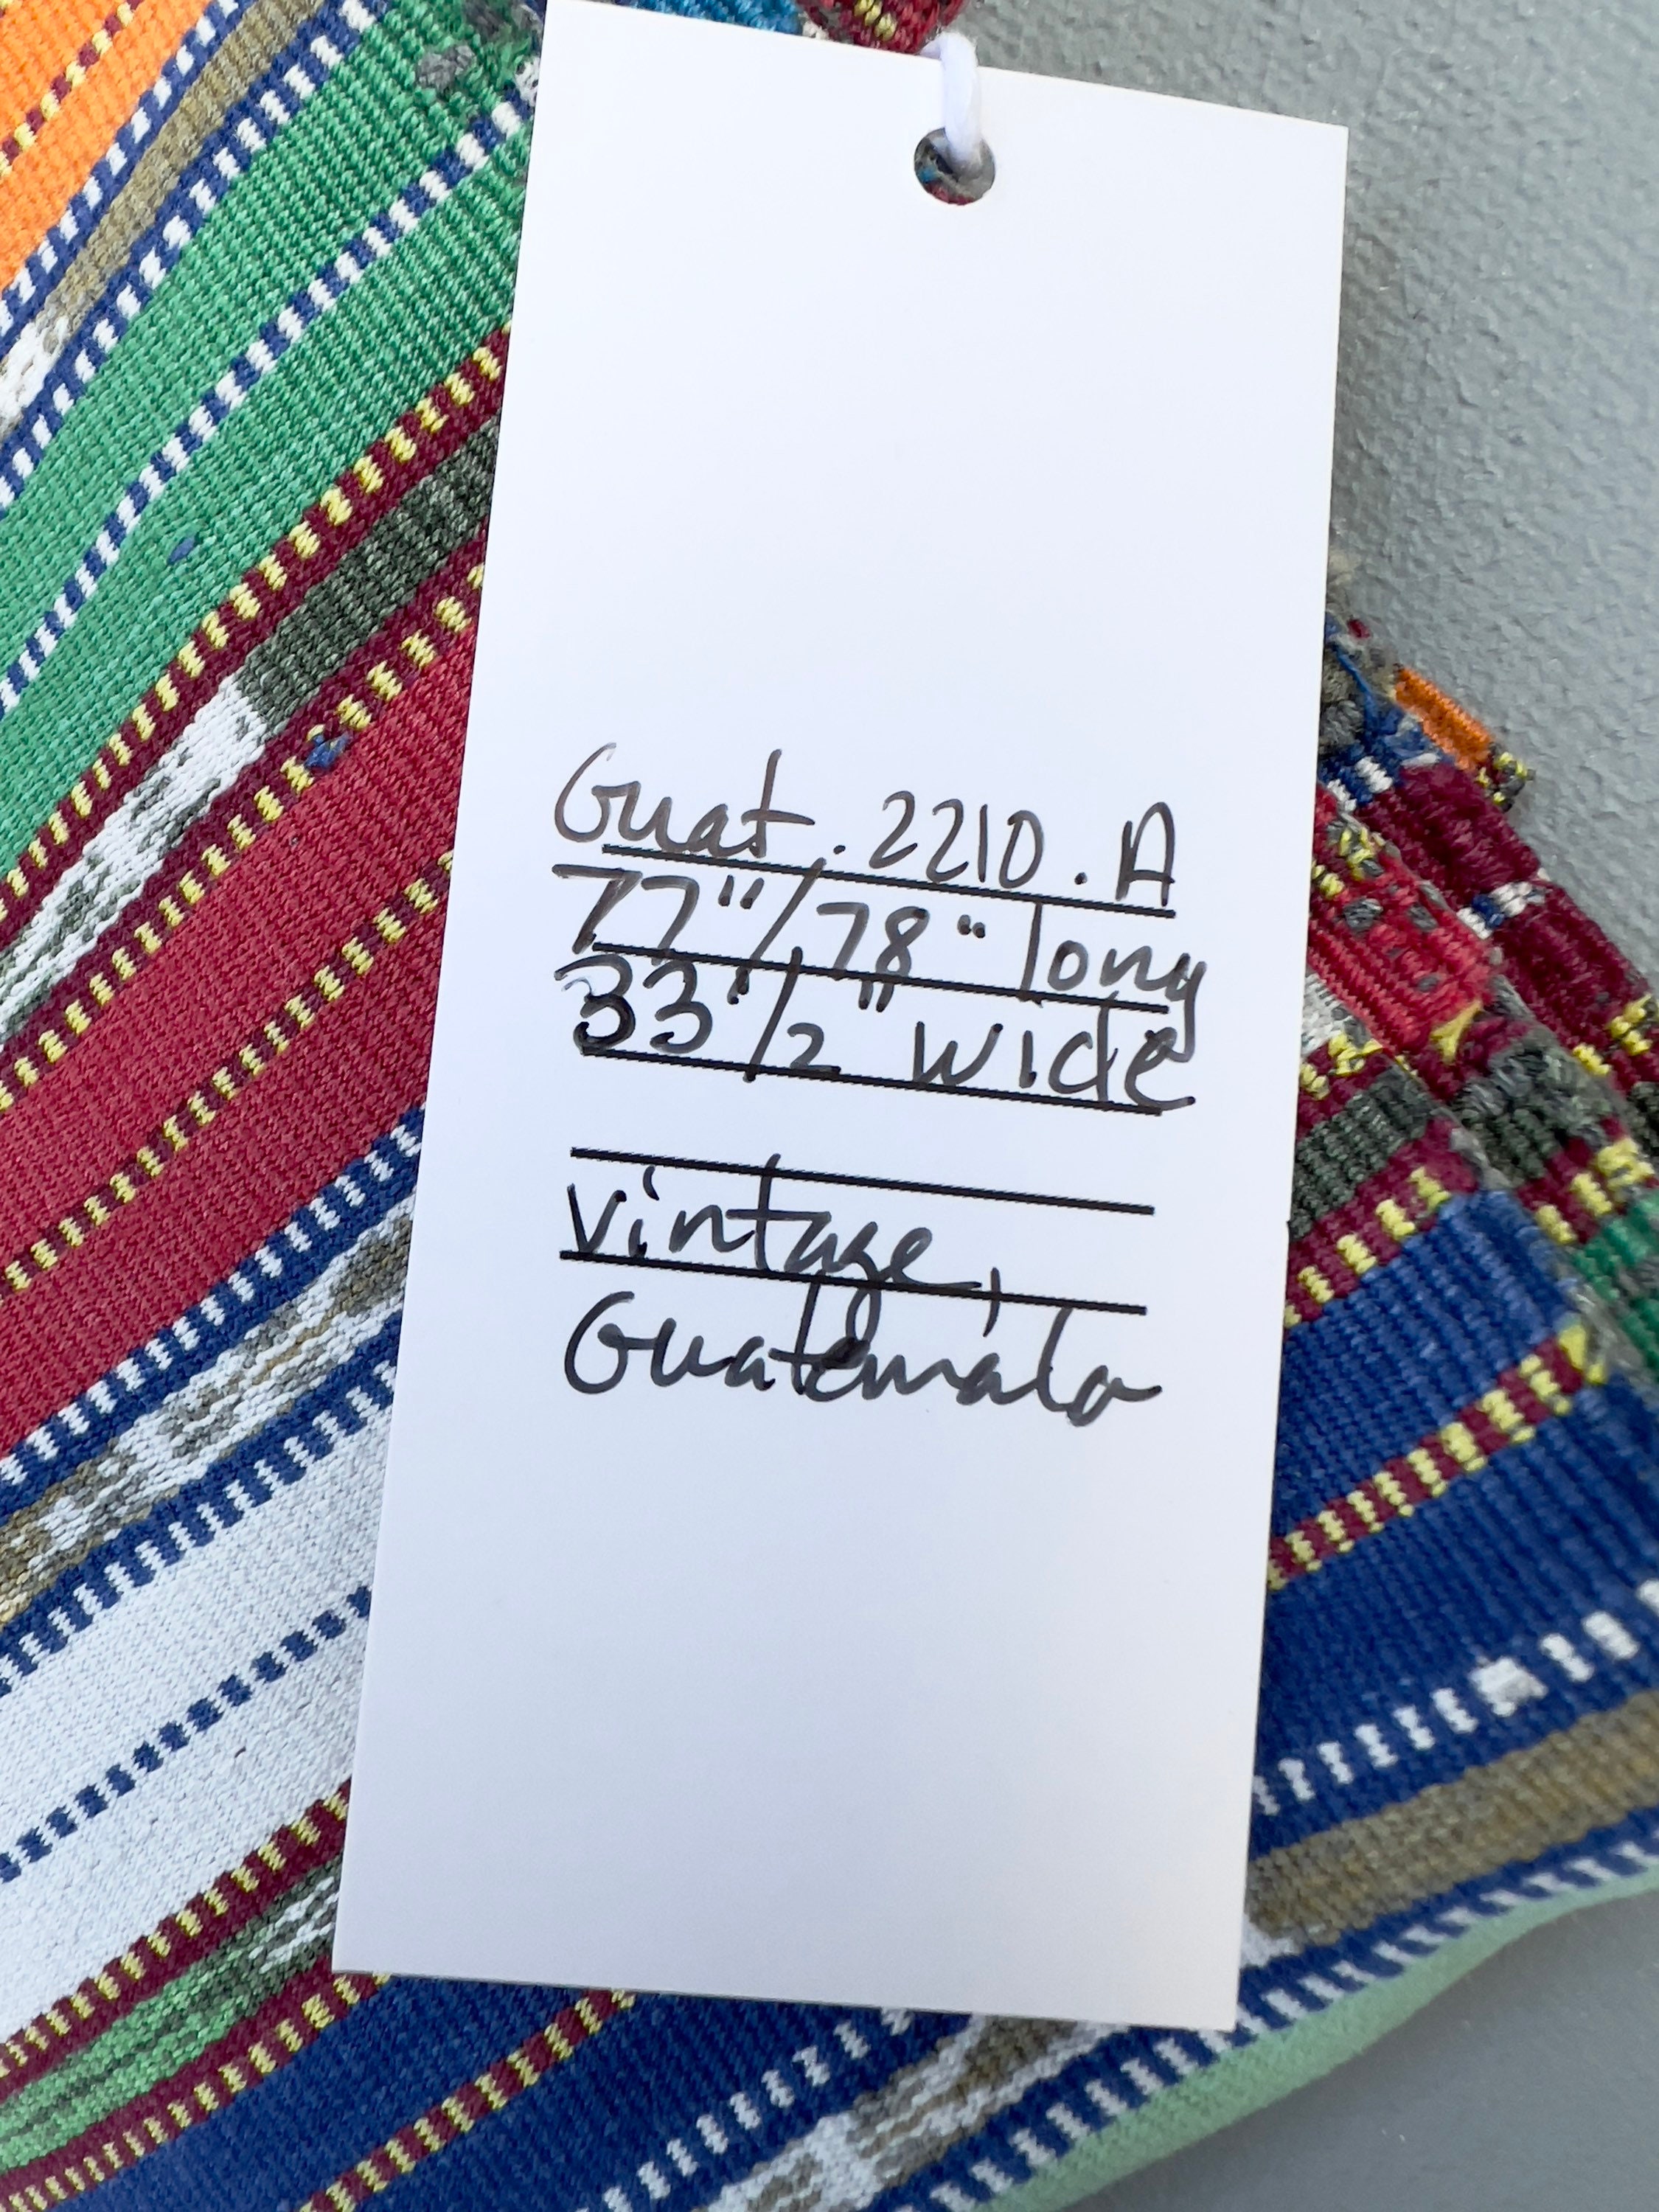 Guat. 2210. A
77"/78" long
33 1/2" wide
vintage,
Guatemala